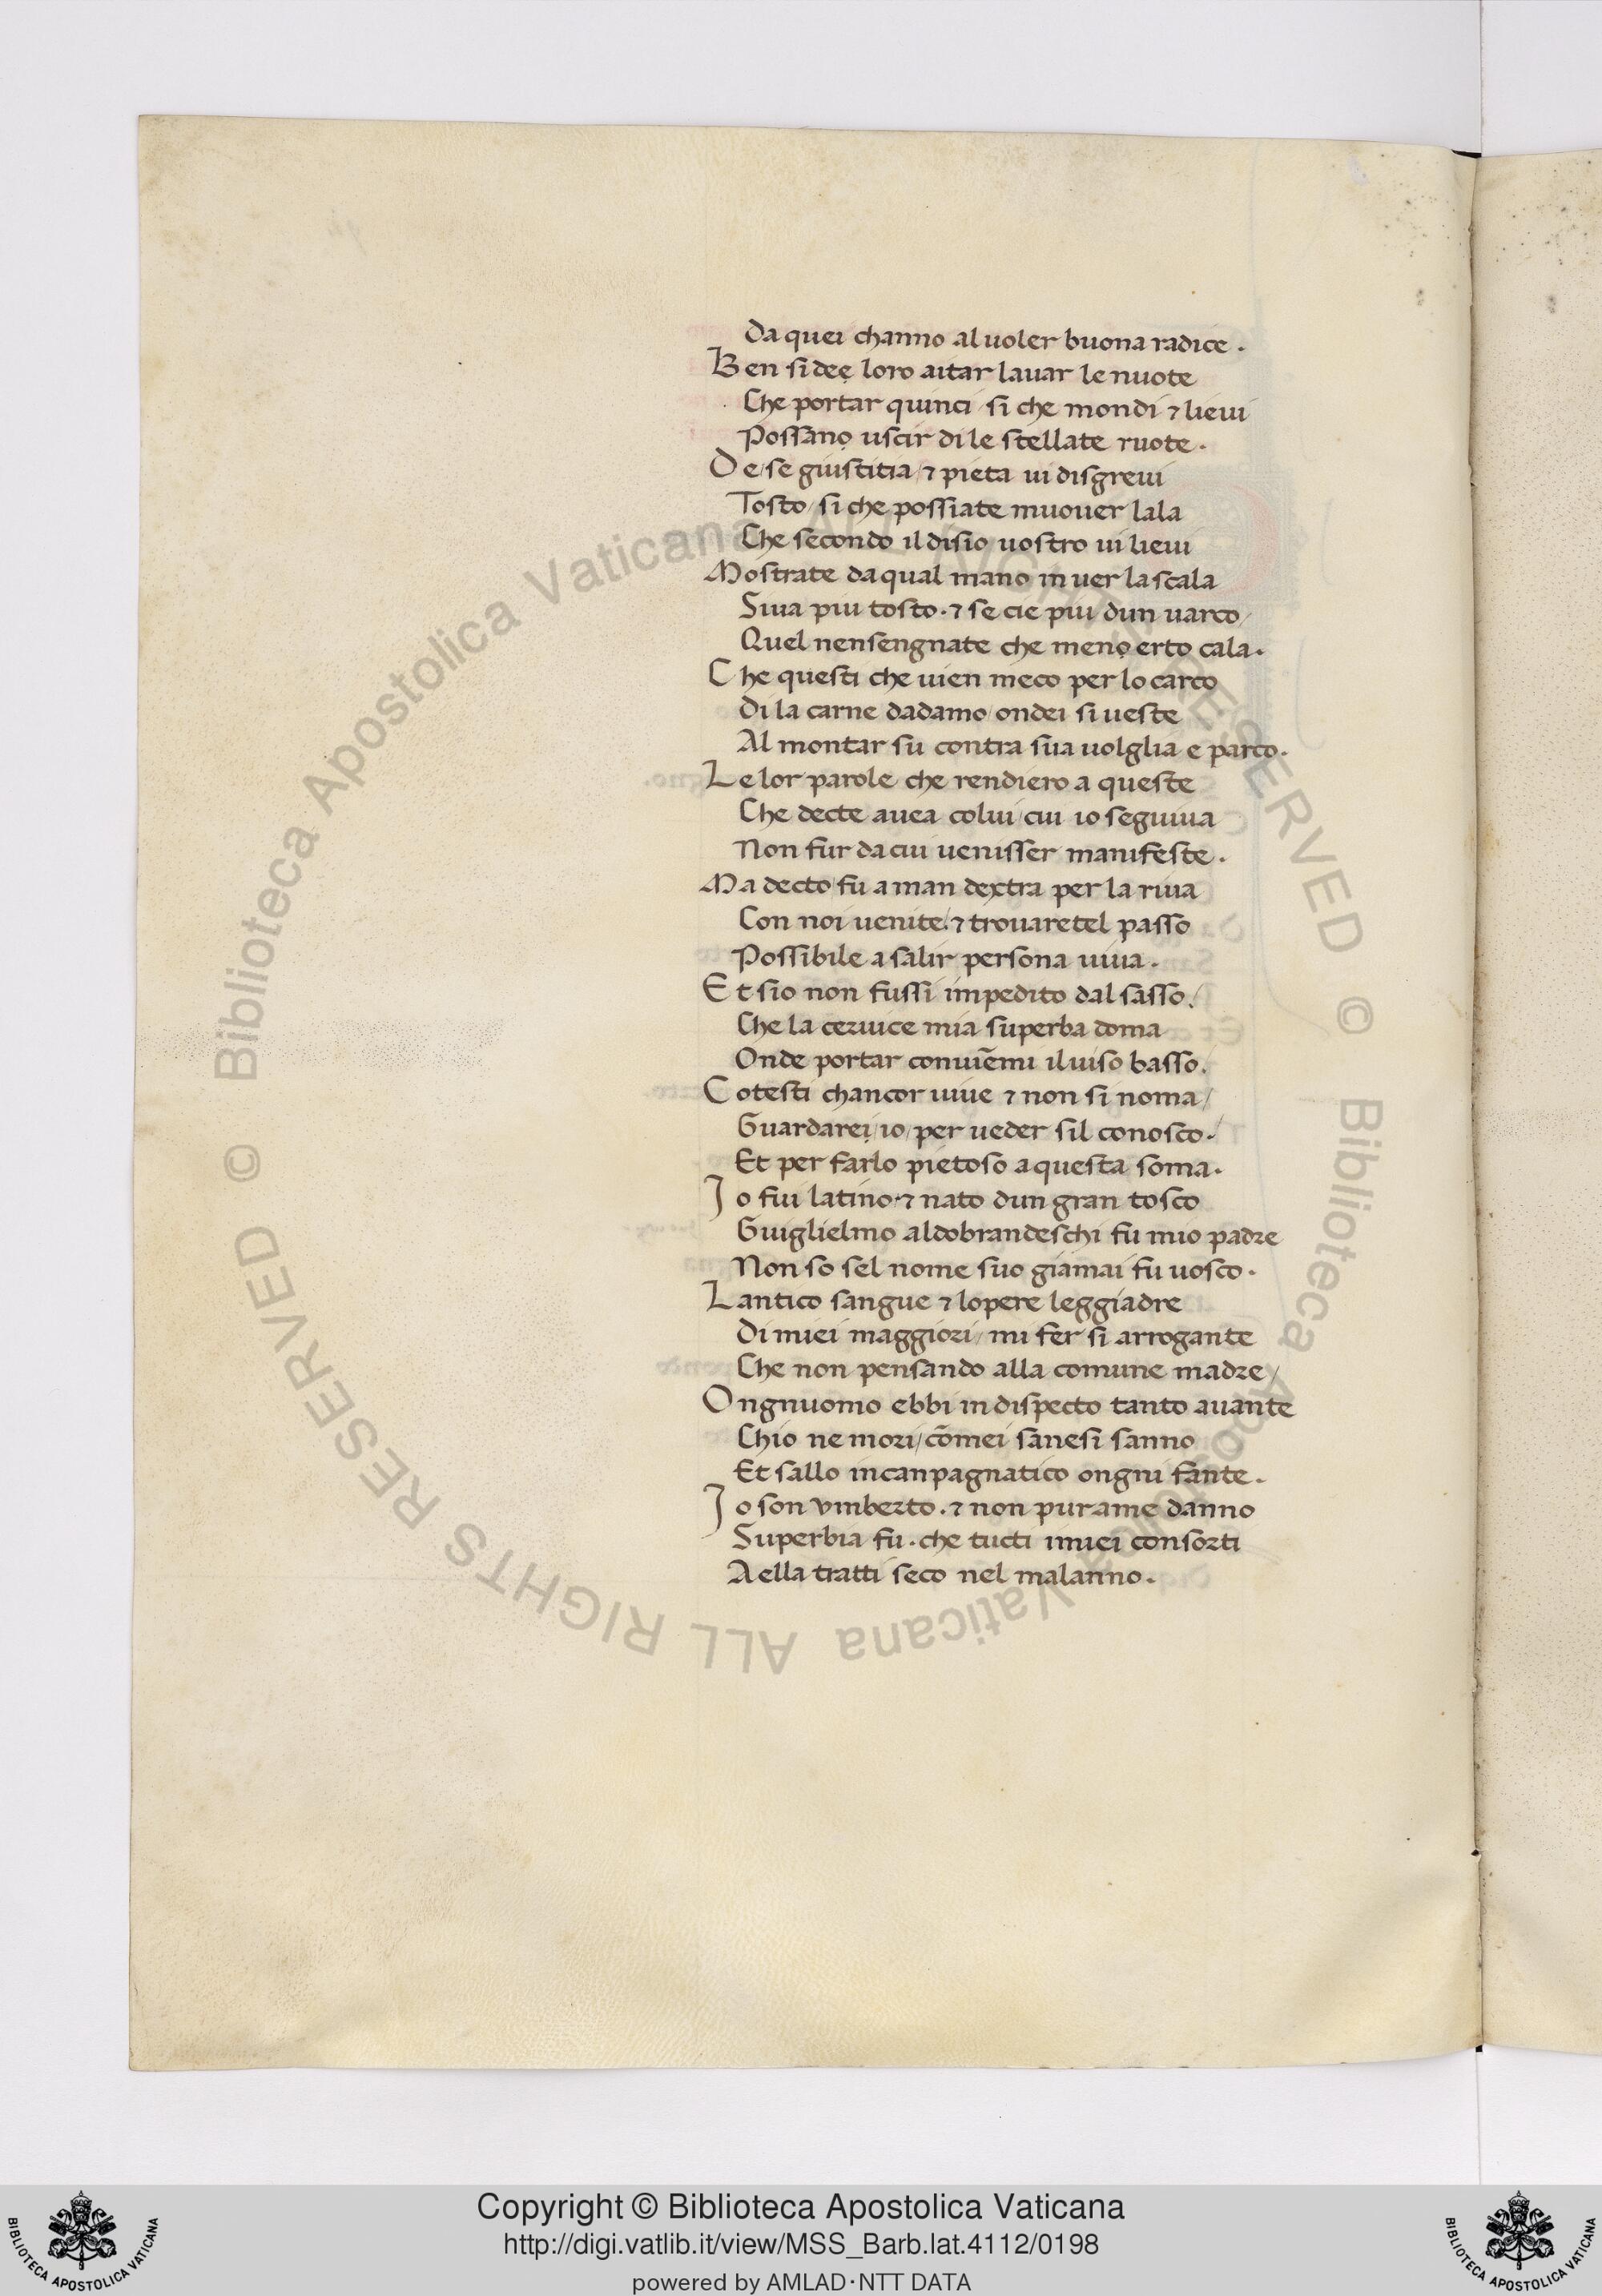 Da quei channo al uoler buona radice .
Ben si dee loro aitar lauar le nuote
Che portar quinci si che mondi ⁊ lieui
Possano uscir di le stellate ruote .
De / se giustitia / ⁊ pieta ui disgreui
Tosto / si che possiate muouer lala
Che secondo il disio uostro ui lieui
Mostrate da qual mano in uer la scala
Siua piu tosto . ⁊ se cie piu dun uarco /
Quel nensengnate che meno erto cala .
Che questi che uien meco per lo carco
Di la carne dadamo / ondei si ueste
Al montar su contra sua uolglia e parco .
Le lor parole / che rendiero a queste
Che decte auea colui / cui io seguiua
Non fur da cui uenisser manifeste .
Ma decto fu a man dextra per la riua
Con noi uenite / ⁊ trouaretel passo
Possibile a salir persona uiua .
Et sio non fussi impedito dal sasso /
Che la ceruice mia superba doma
Onde portar conuiēmi il uiso basso /
Cotesti chancor uiue ⁊ non si noma /
Guardarei / io / per ueder sil conosco . /
Et per farlo pietoso a questa soma .
Io fui latino . ⁊ nato dun gran tosco
Guiglielmo aldobrandeschi fu mio padre
Non so sel nome suo giamai fu uosco .
Lantico sangue ⁊ lopere leggiadre
Di miei maggiori / mi fer si arrogante
Che non pensando alla comune madre /
Ongnuomo ebbi in dispecto tanto auante
Chio ne mori / cōmei sanesi sanno
Et sallo incanpagnatico ongni fante .
Io son vmberto . ⁊ non pur ame danno
Superbia fu . che tucti imiei consorti
A ella tratti seco nel malanno .
© Biblioteca Apostolica Vaticana ALL RIGHTS RESERVED © Biblioteca Apostolica Vaticana ALL RIGHTS RESERVED
Copyright © Biblioteca Apostolica Vaticana
http://digi.vatlib.it/view/MSS_Barb.lat.4112/0198
powered by AMLAD·NTT DATA
BIBLIOTECA APOSTOLICA VATICANA
BIBLIOTECA APOSTOLICA VATICANA